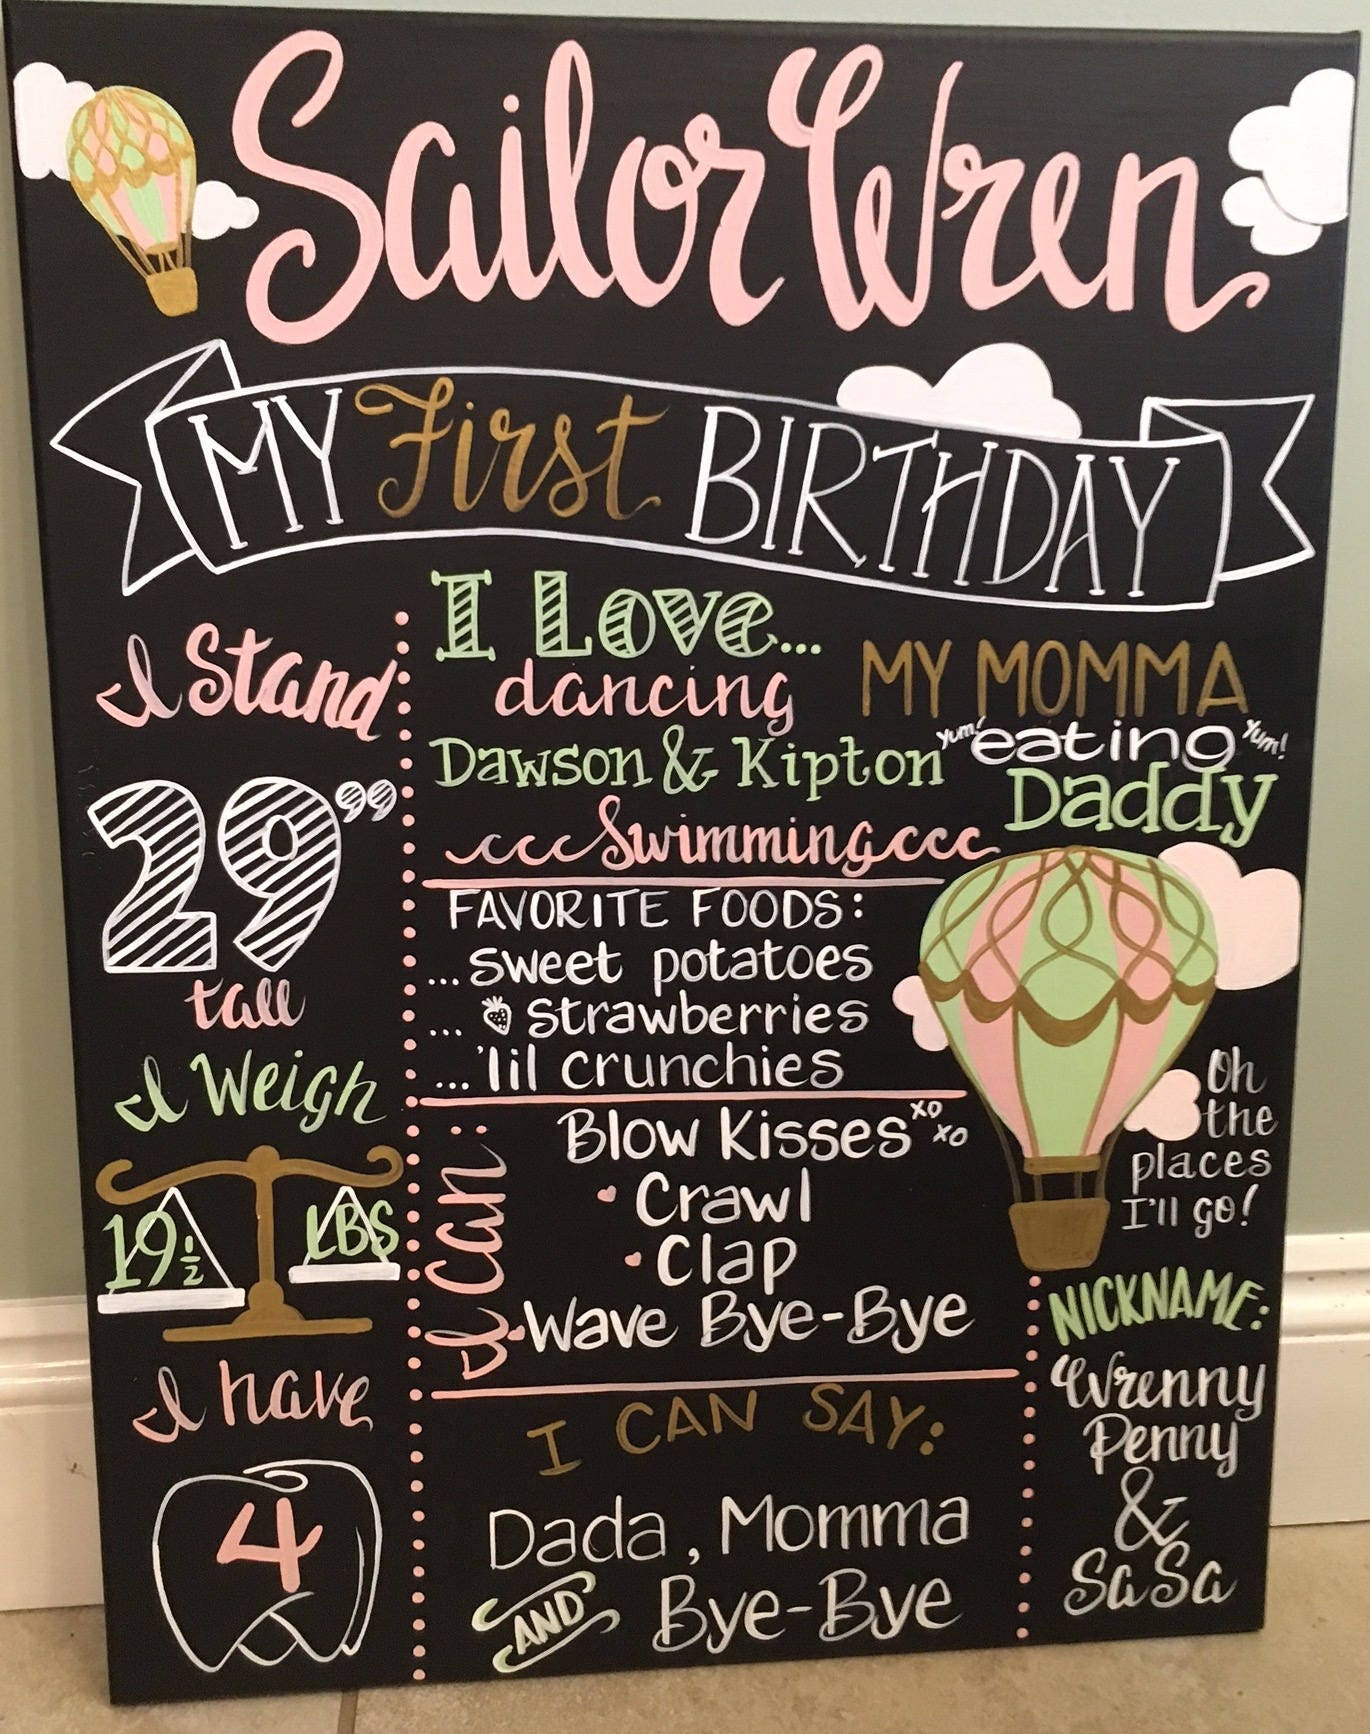 Sailor Wren
MY First BIRTHDAY
I Stand
29"
tall
I Weigh
19 1/2 LBS
I have
4
I Love...
dancing
MY MOMMA
Dawson & Kipton
yum! eating yum!
Daddy
Swimming
FAVORITE FOODS:
... sweet potatoes
... strawberries
... 'lil crunchies
I Can:
Blow Kisses xo xo
Crawl
Clap
Wave Bye-Bye
I CAN SAY:
Dada, Momma
AND Bye-Bye
Oh
the
places
I'll go!
NICKNAME:
Wrenny
Penny
&
SaSa